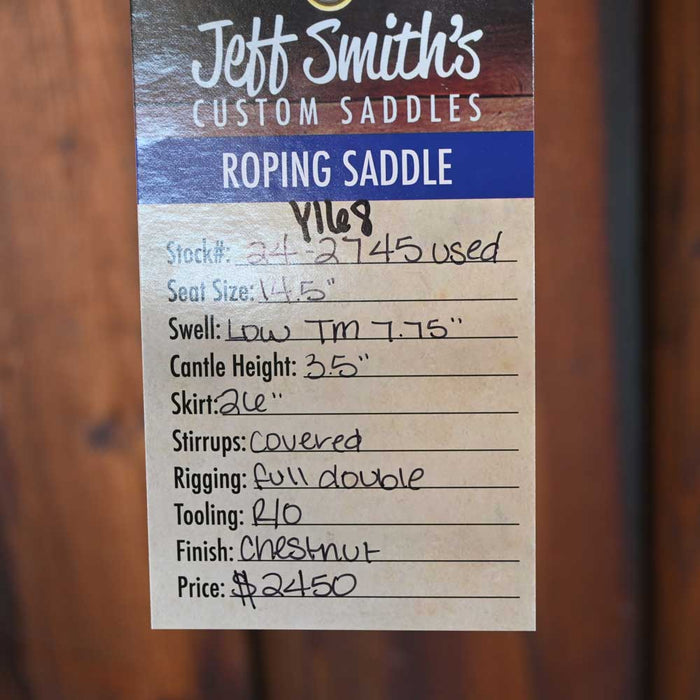 Jeff Smith's
CUSTOM SADDLES
ROPING SADDLE
Y1168
Stock#: 24-2745 used
Seat Size: 14.5"
Swell: Low TM 7.75"
Cantle Height: 3.5"
Skirt: 26"
Stirrups: covered
Rigging: full double
Tooling: R/O
Finish: Chestnut
Price: $2450